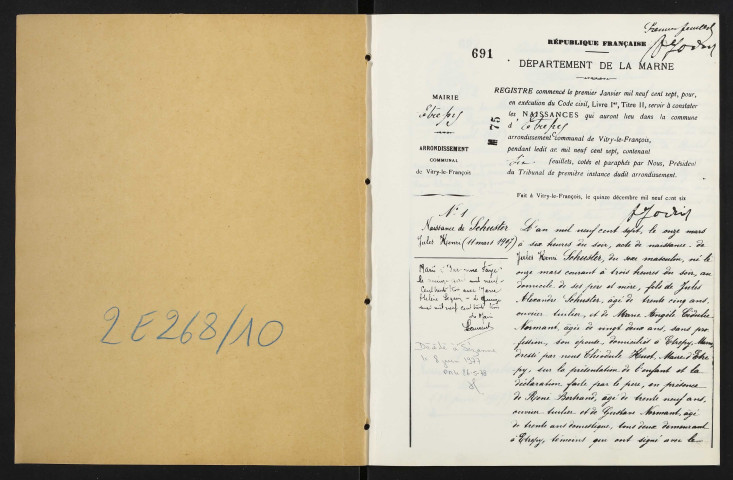 2E268/10
Premier feuillet
691
RÉPUBLIQUE FRANÇAISE
DÉPARTEMENT DE LA MARNE
MAIRIE
Etrepy
ARRONDISSEMENT
COMMUNAL
de Vitry-le-François
N 75
REGISTRE commencé le premier Janvier mil neuf cent sept, pour,
en exécution du Code civil, Livre Ier, Titre II, servir à constater
les NAISSANCES qui auront lieu dans la commune
d'Etrepy
arrondissement communal de Vitry-le-François,
pendant ledit an mil neuf cent sept, contenant
feuillets, cotés et paraphés par Nous, Président
du Tribunal de première instance dudit arrondissement.
Fait à Vitry-le-François, le quinze décembre mil neuf cent six
N° 1
Naissance de Schuster
Jules Henri (11 mars 1907)
Marié à
le
mil neuf
cent trente
avec Marie
Hélène
mil neuf cent trente
Décédé à Sézanne
le 8 juin 1977
L'an mil neuf cent sept, le onze mars
à six heures du soir, acte de naissance de
Jules Henri Schuster, du sexe masculin, né le
onze mars courant à trois heures du soir, au
domicile de ses père et mère, fils de Jules
Alexandre Schuster, âgé de trente cinq ans,
ouvrier tuilier, et de Marie Angèle
Normant, âgée de vingt deux ans, sans pro
fession, son épouse, domiciliés à Etrepy, Marne
dressé par nous Théodule Huot, Maire d'Etre
py, sur la présentation de l'enfant et la
déclaration faite par le père, en présence
de René Bertrand, âgé de trente neuf ans,
ouvrier tuilier et de Gustave Normant, âgé
de trente ans domestique, tous deux demeurant
à Etrepy, témoins qui ont signé avec le